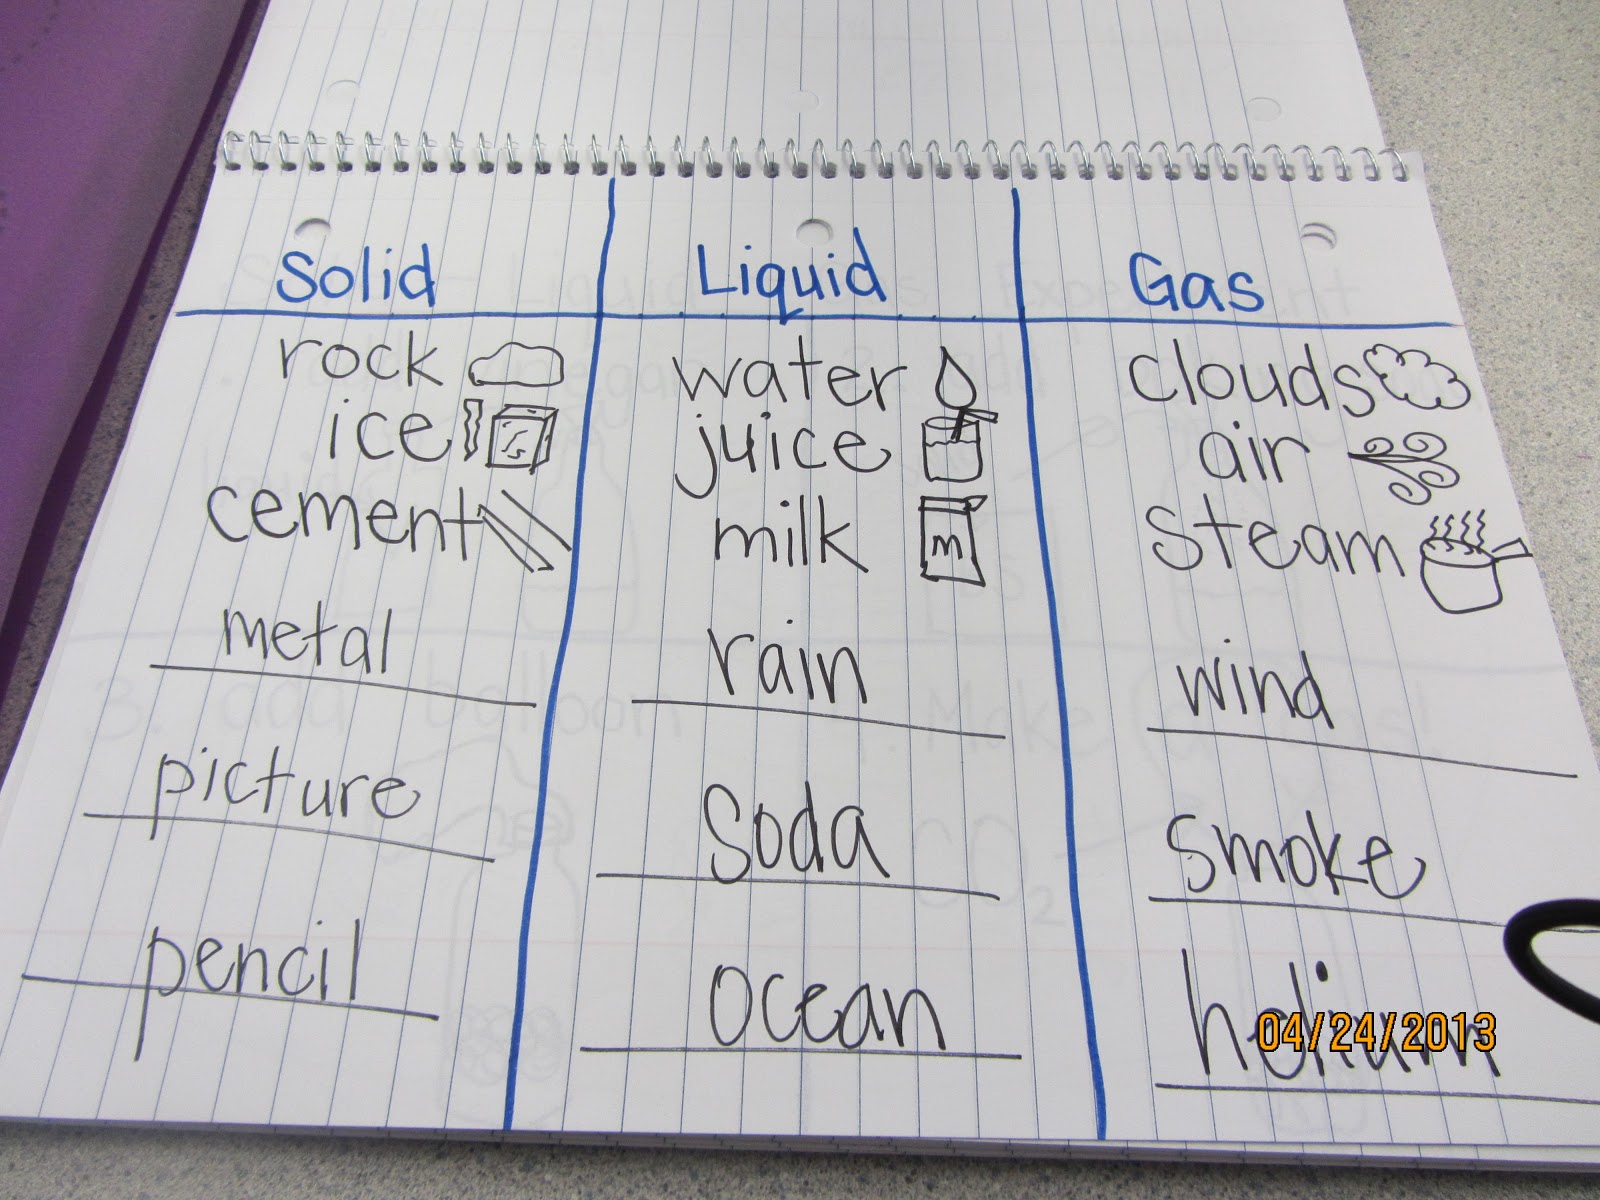 Solid Liquid Gas
rock water clouds
ice juice air
cement milk steam
m
metal rain wind
picture soda smoke
pencil ocean helium
04/24/2013
3. add balloon